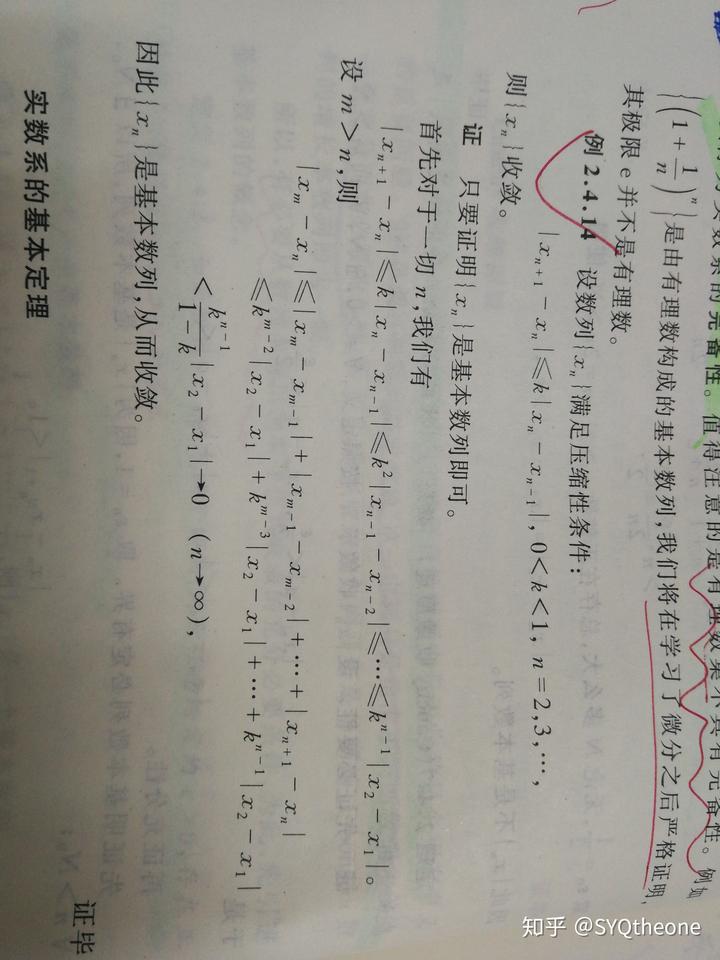 实数系的完备性。值得注意的是有理数集不具有完备性。例如
{(1 + 1/n)^n}是由有理数构成的基本数列,我们将在学习了微分之后严格证明,
其极限 e 并不是有理数。
例 2.4.14 设数列{x_n}满足压缩性条件:
|x_{n+1} - x_n| ≤ k|x_n - x_{n-1}|, 0<k<1, n=2,3,…,
则{x_n}收敛。
证 只要证明{x_n}是基本数列即可。
首先对于一切 n,我们有
|x_{n+1} - x_n| ≤ k|x_n - x_{n-1}| ≤ k^2|x_{n-1} - x_{n-2}| ≤ … ≤ k^{n-1}|x_2 - x_1|。
设 m>n,则
|x_m - x_n| ≤ |x_m - x_{m-1}| + |x_{m-1} - x_{m-2}| + … + |x_{n+1} - x_n|
≤ k^{m-2}|x_2 - x_1| + k^{m-3}|x_2 - x_1| + … + k^{n-1}|x_2 - x_1|
< k^{n-1}/(1-k) |x_2 - x_1| → 0 (n→∞),
因此{x_n}是基本数列,从而收敛。
证毕
实数系的基本定理
知乎 @SYQtheone